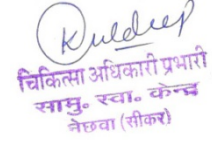 Kuldeep
चिकित्सा अधिकारी प्रभारी
सामु॰ स्वा॰ केन्द्र
नेछवा (सीकर)